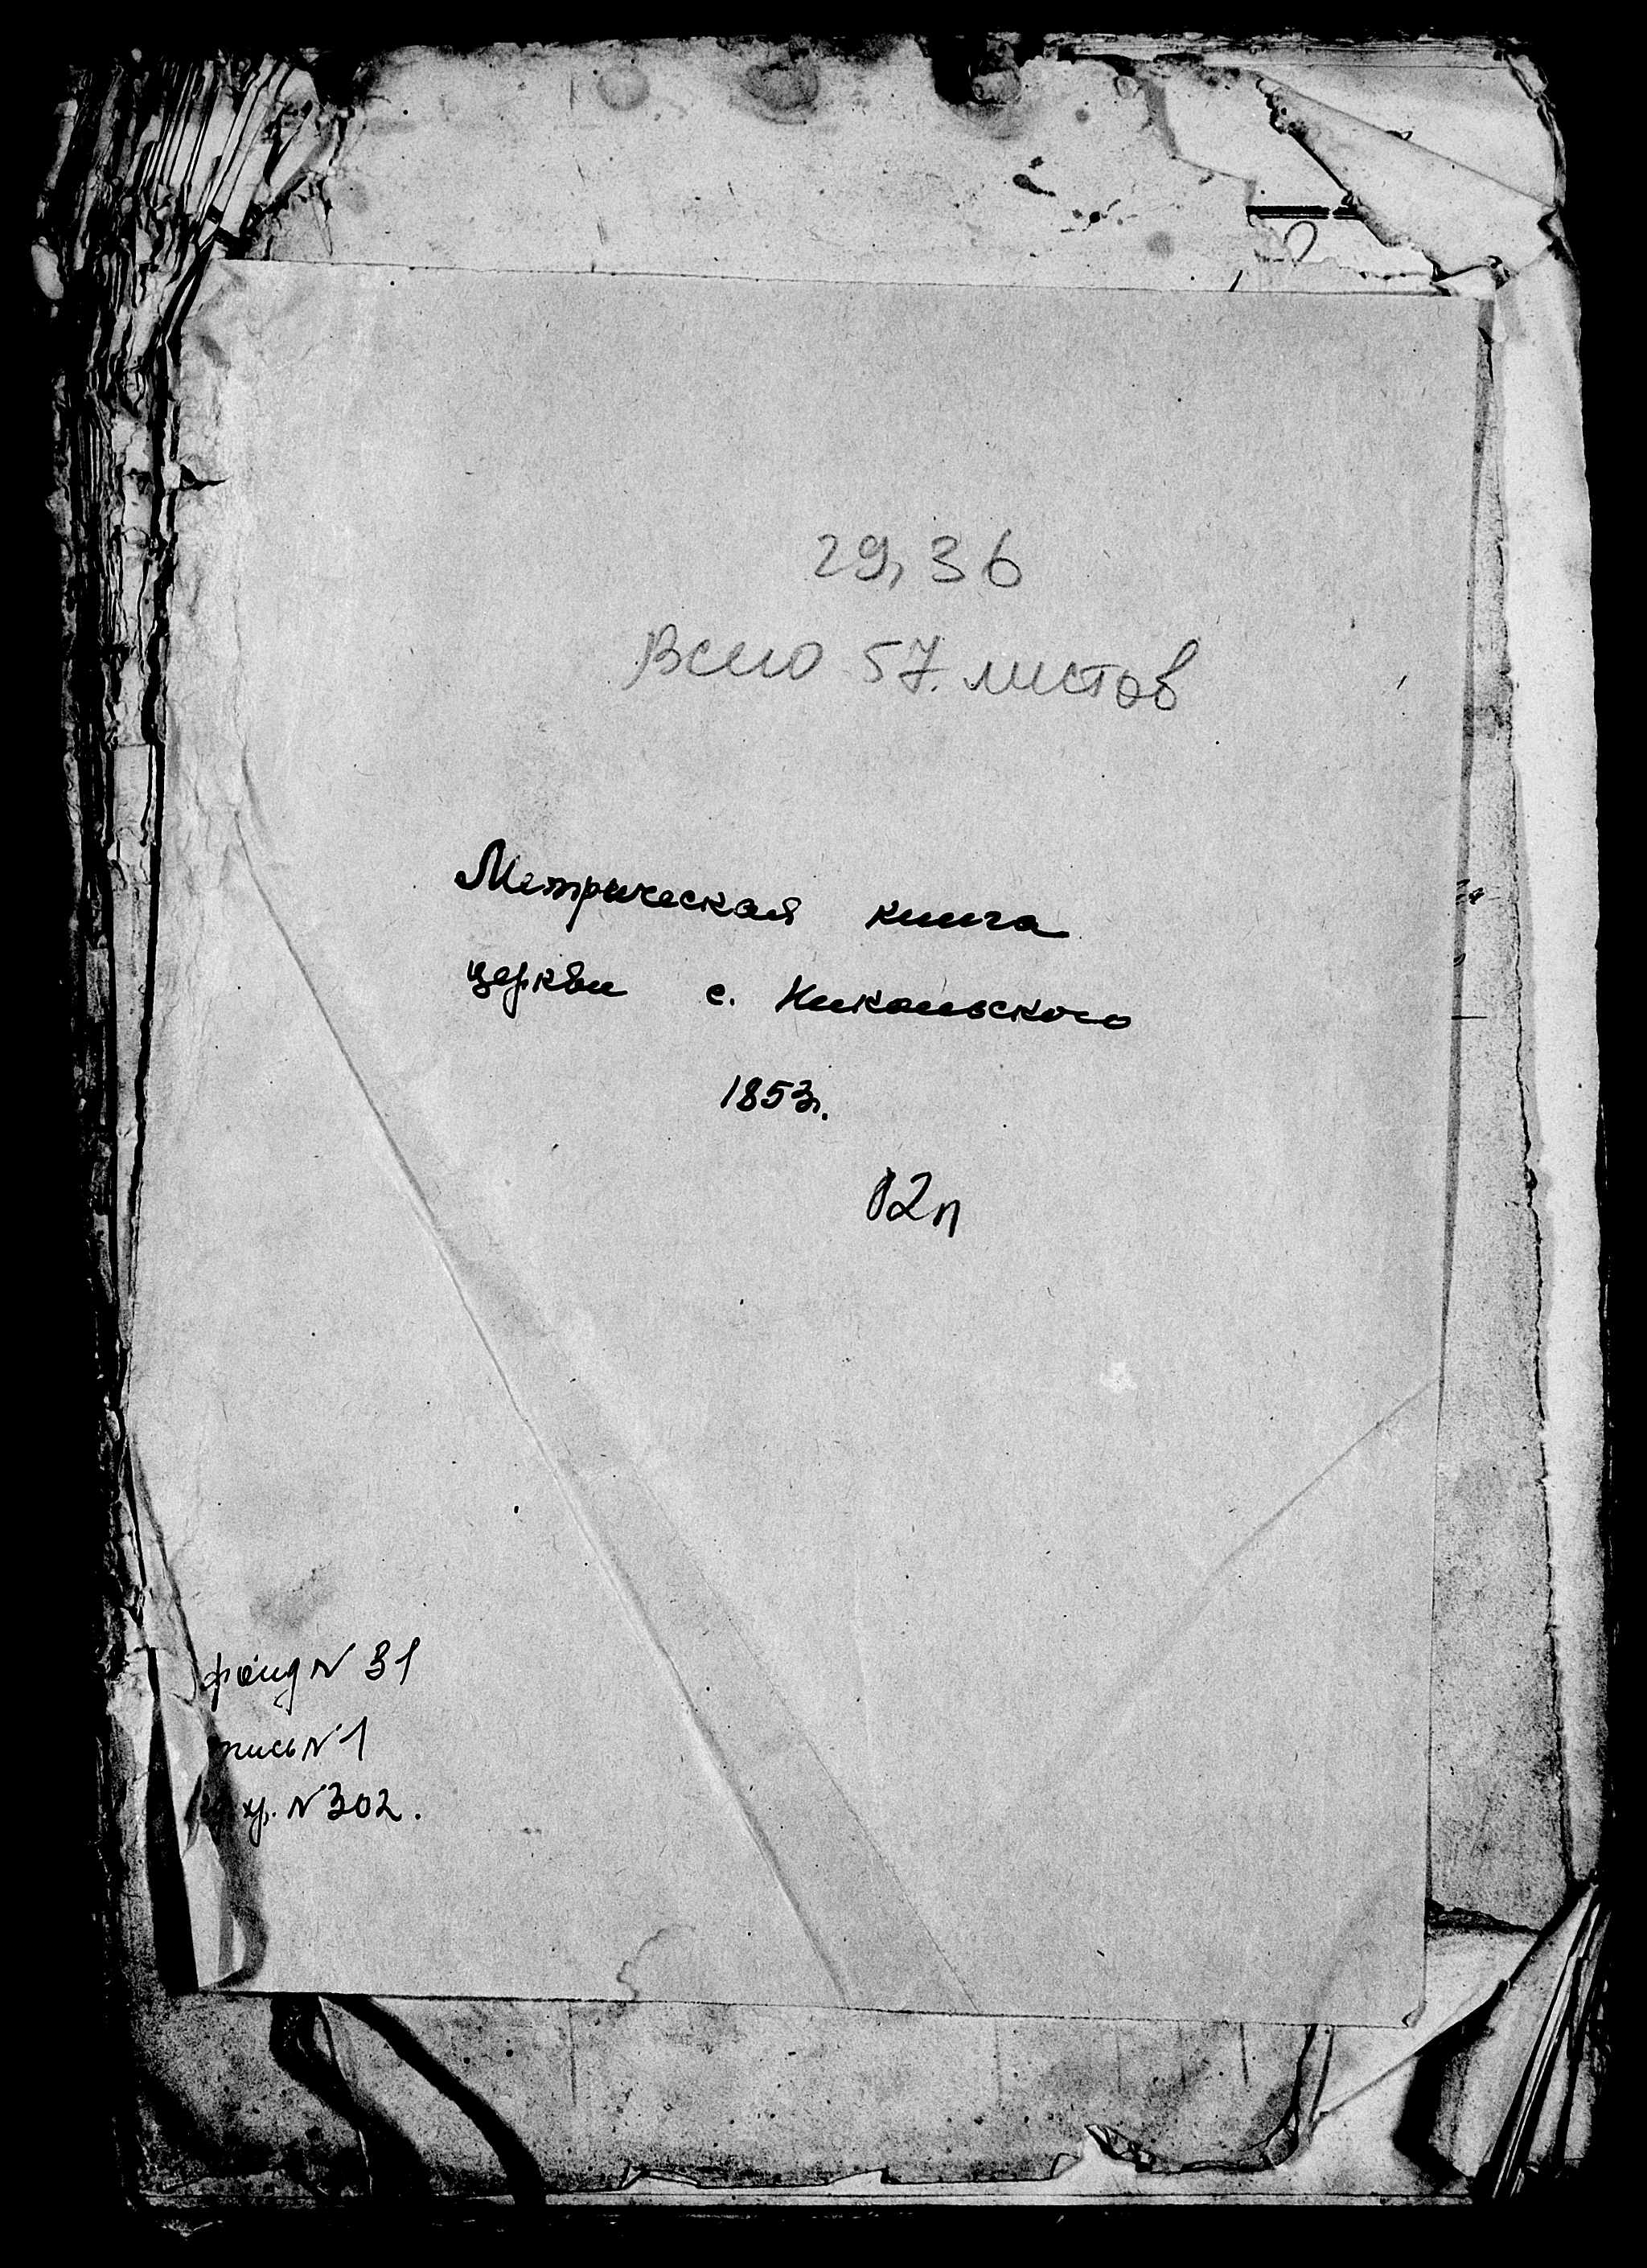 29, 36
Всего 57. листов
Метрическая книга
церкви с. Никольского
1853г.
02п
фонд N 31
пись N 1
хр. N 302.